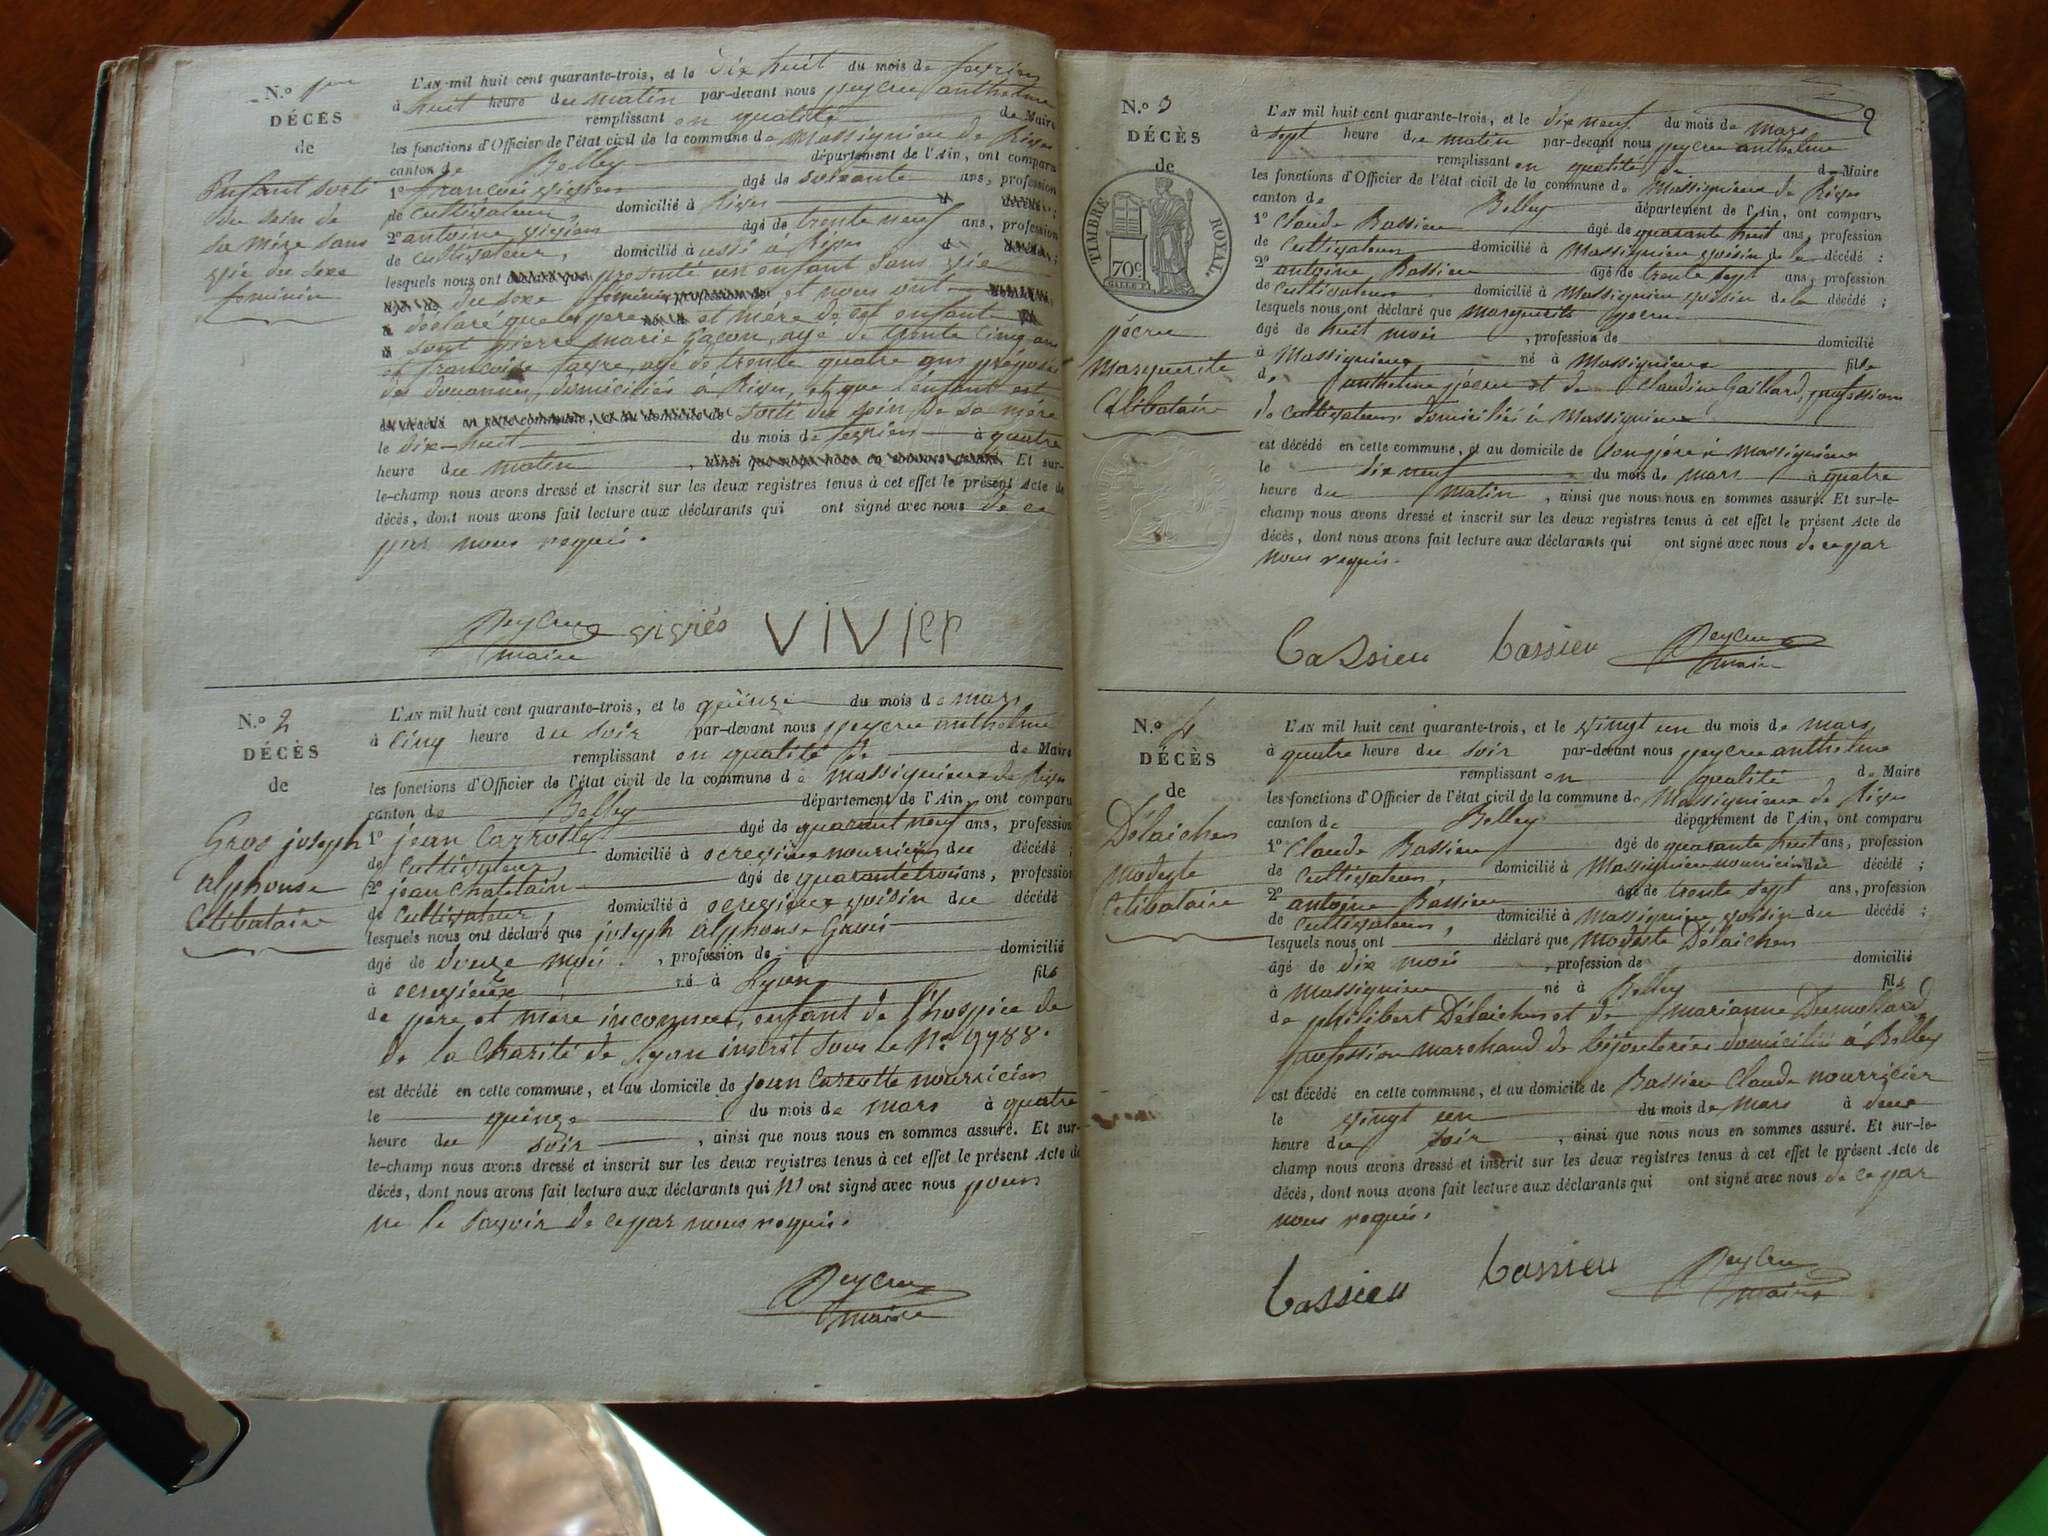 N.º 1er
DÉCÈS
de
Enfant sorti
du sein de
sa mère sans
vie du sexe
feminin
L'AN mil huit cent quarante-trois, et le dix huit du mois de fevrier
à huit heure du matin par-devant nous peycru anthelme
remplissant en qualité de Maire
les fonctions d'Officier de l'état civil de la commune de Massignieu de Rives
canton de Belley département de l'Ain, ont comparu
1º françois vivien agé de soixante ans, profession
de cultivateur, domicilié à Rives
2º antoine vivien agé de trente neuf ans, profession
de cultivateur, domicilié aussi à Rives
lesquels nous ont présenté un enfant sans vie
du sexe féminin et nous ont
déclaré que le père et mère de cet enfant
sont pierre marie Gacon, agé de trente cinq ans
et françoise favre, agé de trente quatre ans préposé
des douannes, domiciliés a Rives, et que l'enfant est
sorti du sein de sa mère
le dix-huit du mois de fevrier à quatre
heure du matin , ainsi que nous nous en sommes assuré. Et sur-
le-champ nous avons dressé et inscrit sur les deux registres tenus à cet effet le présent Acte de
décès, dont nous avons fait lecture aux déclarants qui ont signé avec nous de ce
par nous requis.
Peycru maire VIVIer
N.º 2
DÉCÈS
de
Gros joseph
alphonse
Célibataire
L'AN mil huit cent quarante-trois, et le quinze du mois de mars
à cinq heure du soir par-devant nous peycru anthelme
remplissant en qualité de de Maire
les fonctions d'Officier de l'état civil de la commune de Massignieux de Rives
canton de Belley département de l'Ain, ont comparu
1º jean Carrotte agé de quarant neuf ans, profession
de cultivateur domicilié à nourricier du décédé ;
2º jean Chatelain agé de quarante trois ans, profession
de cultivateur, domicilié à voisin du décédé
lesquels nous ont déclaré que joseph alphonse Gros
agé de douze mois , profession de domicilié
à né à Lyon fils
de père et mère inconnues, enfant de l'hospice de
de la Charité de Lyon inscrit sous le No 9788.
est décédé en cette commune, et au domicile de jean Carrotte nourricier
le quinze du mois de mars à quatre
heure du soir , ainsi que nous nous en sommes assuré. Et sur-
le-champ nous avons dressé et inscrit sur les deux registres tenus à cet effet le présent Acte de
décès, dont nous avons fait lecture aux déclarants qui n' ont signé avec nous pour
ne le savoir de ce par nous requis.
Peycru
maire
2
N.º 3
DÉCÈS
de
TIMBRE ROYAL
70c
pécru
Marguerite
Célibataire
L'AN mil huit cent quarante-trois, et le dix neuf du mois de mars
à sept heure du matin par-devant nous peycru anthelme
remplissant en qualité de de Maire
les fonctions d'Officier de l'état civil de la commune de Massignieux de Rives
canton de Belley département de l'Ain, ont comparu
1º Claude Bassieu agé de quarante huit ans, profession
de cultivateur domicilié à Massignieu voisin de la décédé ;
2º antoine Bassieu agé de trente sept ans, profession
de cultivateur domicilié à Massignieu voisin de la décédé ;
lesquels nous ont déclaré que Marguerite pécru
agé de huit mois , profession de domicilié
à Massignieux né à Massignieux fils
de anthelme pécru et de Claudine Gaillard, profession
de cultivateurs domiciliés à Massignieux
est décédé en cette commune, et au domicile de son père à Massignieux
le dix neuf du mois de mars à quatre
heure du matin , ainsi que nous nous en sommes assuré. Et sur-le-
champ nous avons dressé et inscrit sur les deux registres tenus à cet effet le présent Acte de
décès, dont nous avons fait lecture aux déclarants qui ont signé avec nous de ce par
nous requis.
bassieu bassieu Peycru
maire
N.º 4
DÉCÈS
de
Délaichen
modeste
Célibataire
L'AN mil huit cent quarante-trois, et le vingt un du mois de mars
à quatre heure du soir par-devant nous peycru anthelme
remplissant en qualité de Maire
les fonctions d'Officier de l'état civil de la commune de Massignieux de Rives
canton de Belley département de l'Ain, ont comparu
1º Claude Bassieu agé de quarante huit ans, profession
de cultivateur, domicilié à Massignieu nourricier du décédé ;
2º antoine Bassieu agé de trente sept ans, profession
de cultivateur, domicilié à Massignieu voisin du décédé ;
lesquels nous ont déclaré que modeste Délaichen
âgé de dix mois , profession de domicilié
à Massignieu né à Belley fils
de philibert Délaichen et de marianne Dumollard
profession marchand de bijouteries domicilié à Belley
est décédé en cette commune, et au domicile de Bassieu Claude nourricier
le vingt un du mois de mars à deux
heure du soir , ainsi que nous nous en sommes assuré. Et sur-le-
champ nous avons dressé et inscrit sur les deux registres tenus à cet effet le présent Acte de
décès, dont nous avons fait lecture aux déclarants qui ont signé avec nous de ce par
nous requis.
bassieu bassieu Peycru
maire